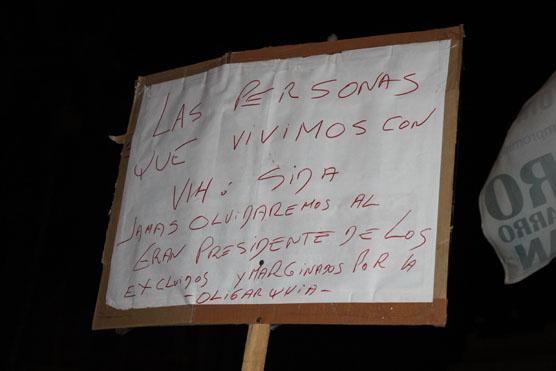 LAS PERSONAS
QUE VIVIMOS CON
VIH ó SIDA
JAMAS OLVIDAREMOS AL
GRAN PRESIDENTE DE LOS
EXCLUIDOS Y MARGINADOS POR LA
- OLIGARQUIA -
RO
RRO
AN